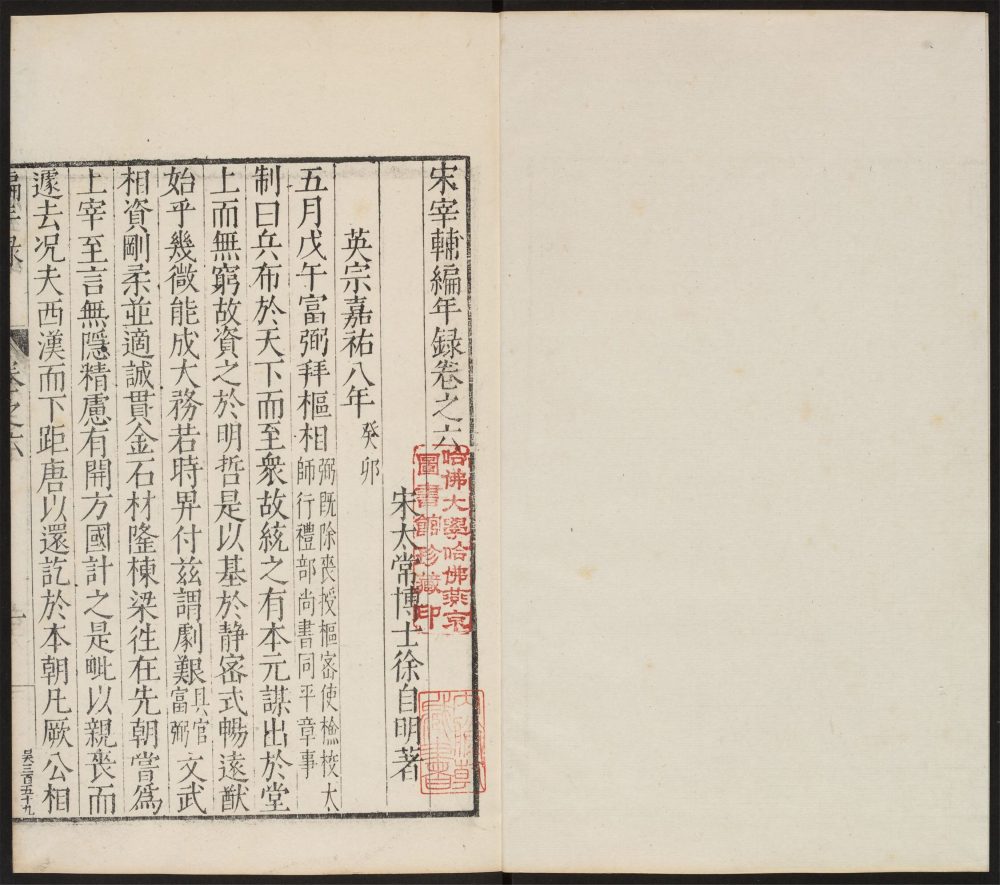 宋宰輔編年録卷之六
宋太常博士徐自明著
英宗嘉祐八年癸卯
五月戊午富弼拜樞相弼既除喪授樞密使檢校太師行禮部尚書同平章事
制曰兵布於天下而至衆故統之有本元謀出於堂
上而無窮故資之於明哲是以基於静密式暢遠猷
始乎幾微能成大務若時畀付兹謂劇艱具官富弼文武
相資剛柔並適誠貫金石材隆棟梁徃在先朝嘗爲
上宰至言無隱精慮有開方國計之是毗以親喪而
遽去况夫西漢而下距唐以還訖於本朝凡厥公相
編年録
卷之六
一
吴三百五十九
哈佛大學哈佛燕京
圖書館珍藏印